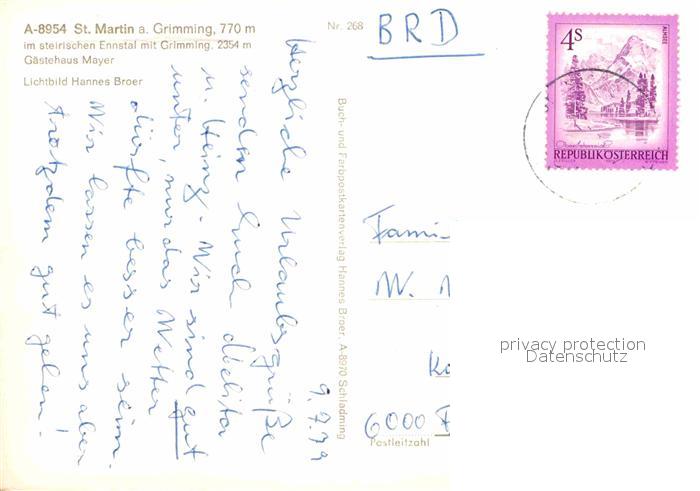 A-8954 St. Martin a. Grimming, 770 m
im steirischen Ennstal mit Grimming, 2354 m
Gästehaus Mayer
Lichtbild Hannes Broer
Nr. 268
9.7.79
Herzliche Urlaubsgrüße
senden Euch Melitta
u. Heinz. Wir sind gut
unter, nur das Wetter
dürfte besser sein.
Wir lassen es uns aber
trotzdem gut gehen!
Buch- und Farbpostkartenverlag Hannes Broer, A-8970 Schladming
BRD
4S
ALMSEE
Oberösterreich
REPUBLIK ÖSTERREICH
Fami
W.
6000
Postleitzahl
privacy protection
Datenschutz